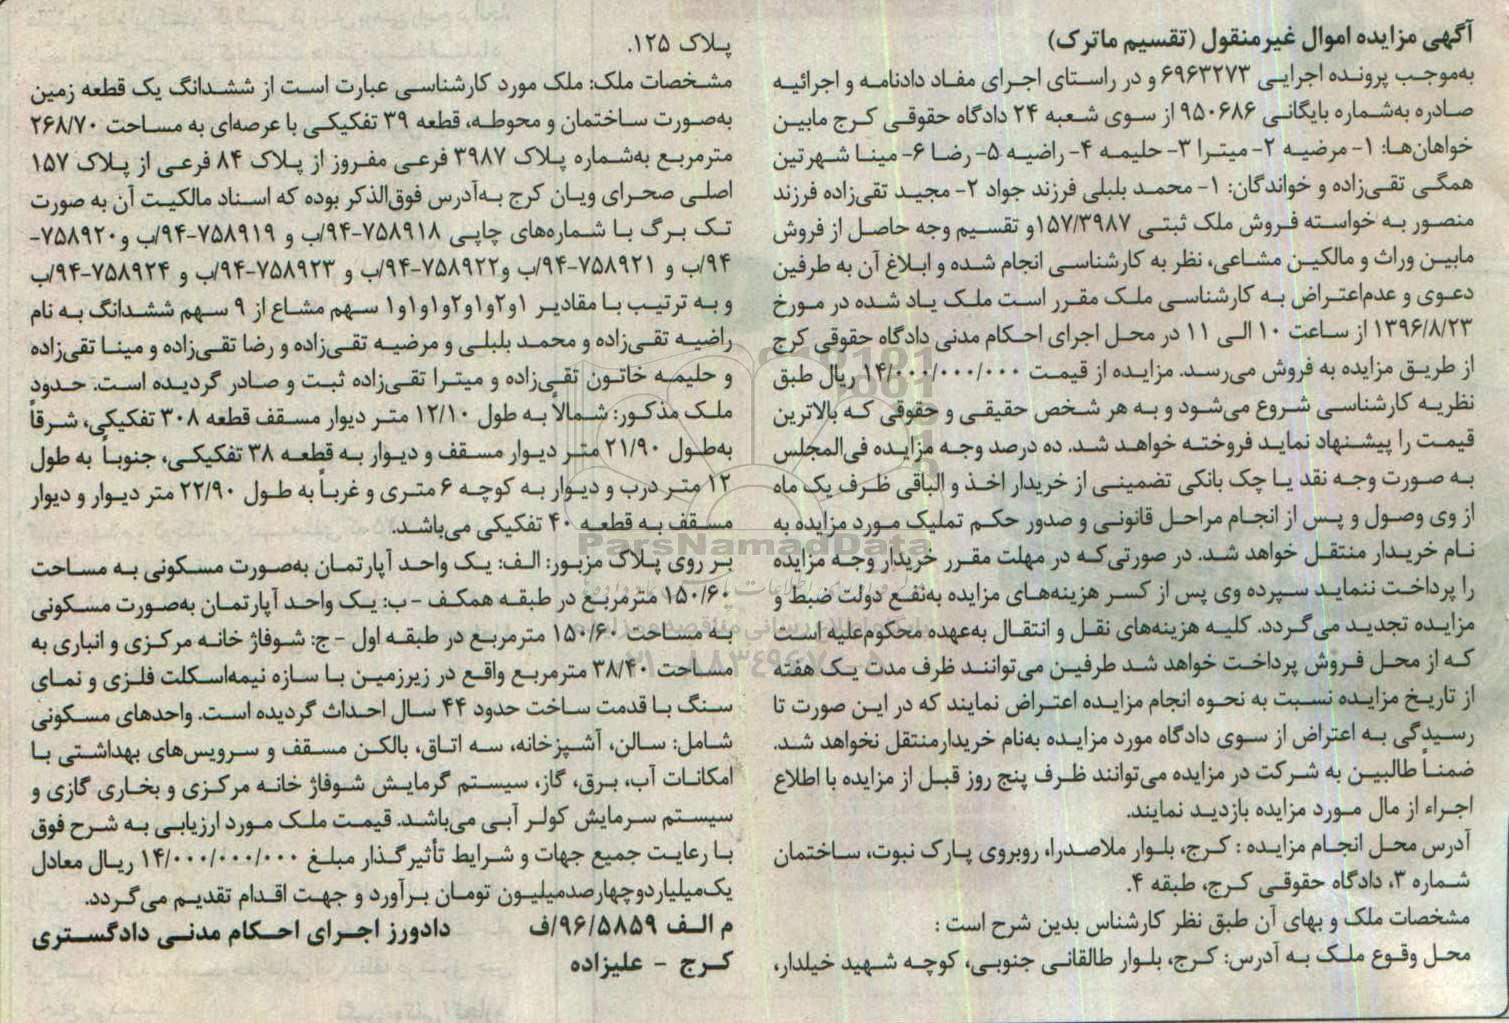 آگهی مزایده اموال غیرمنقول (تقسیم ماترک)
به‌موجب پرونده اجرایی ۶۹۶۳۲۷۳ و در راستای اجرای مفاد دادنامه و اجرائیه
صادره به‌شماره بایگانی ۹۵۰۶۸۶ از سوی شعبه ۲۴ دادگاه حقوقی کرج مابین
خواهان‌ها: ۱- مرضیه ۲- میترا ۳- حلیمه ۴- راضیه ۵- رضا ۶- مینا شهرتین
همگی تقی‌زاده و خواندگان: ۱- محمد بلبلی فرزند جواد ۲- مجید تقی‌زاده فرزند
منصور به خواسته فروش ملک ثبتی ۱۵۷/۳۹۸۷ و تقسیم وجه حاصل از فروش
مابین وراث و مالکین مشاعی، نظر به کارشناسی انجام شده و ابلاغ آن به طرفین
دعوی و عدم‌اعتراض به کارشناسی ملک مقرر است ملک یاد شده در مورخ
۱۳۹۶/۸/۲۳ از ساعت ۱۰ الی ۱۱ در محل اجرای احکام مدنی دادگاه حقوقی کرج
از طریق مزایده به فروش می‌رسد. مزایده از قیمت ۱۴/۰۰۰/۰۰۰/۰۰۰ ریال طبق
نظریه کارشناسی شروع می‌شود و به هر شخص حقیقی و حقوقی که بالاترین
قیمت را پیشنهاد نماید فروخته خواهد شد. ده درصد وجه مزایده فی‌المجلس
به صورت وجه نقد یا چک بانکی تضمینی از خریدار اخذ و الباقی ظرف یک ماه
از وی وصول و پس از انجام مراحل قانونی و صدور حکم تملیک مورد مزایده به
نام خریدار منتقل خواهد شد. در صورتی‌که در مهلت مقرر خریدار وجه مزایده
را پرداخت ننماید سپرده وی پس از کسر هزینه‌های مزایده به‌نفع دولت ضبط و
مزایده تجدید می‌گردد. کلیه هزینه‌های نقل و انتقال به‌عهده محکوم‌علیه است
که از محل فروش پرداخت خواهد شد طرفین می‌توانند ظرف مدت یک هفته
از تاریخ مزایده نسبت به نحوه انجام مزایده اعتراض نمایند که در این صورت تا
رسیدگی به اعتراض از سوی دادگاه مورد مزایده به‌نام خریدارمنتقل نخواهد شد.
ضمناً طالبین به شرکت در مزایده می‌توانند ظرف پنج روز قبل از مزایده با اطلاع
اجراء از مال مورد مزایده بازدید نمایند.
آدرس محل انجام مزایده : کرج، بلوار ملاصدرا، روبروی پارک نبوت، ساختمان
شماره ۳، دادگاه حقوقی کرج، طبقه ۴.
مشخصات ملک و بهای آن طبق نظر کارشناس بدین شرح است :
محل وقوع ملک به آدرس: کرج، بلوار طالقانی جنوبی، کوچه شهید خیلدار،
پلاک ۱۲۵.
مشخصات ملک: ملک مورد کارشناسی عبارت است از ششدانگ یک قطعه زمین
به‌صورت ساختمان و محوطه، قطعه ۳۹ تفکیکی با عرصه‌ای به مساحت ۲۶۸/۷۰
مترمربع به‌شماره پلاک ۳۹۸۷ فرعی مفروز از پلاک ۸۴ فرعی از پلاک ۱۵۷
اصلی صحرای ویان کرج به‌آدرس فوق‌الذکر بوده که اسناد مالکیت آن به صورت
تک برگ با شماره‌های چاپی ۷۵۸۹۱۸-۹۴/ب و ۷۵۸۹۱۹-۹۴/ب و۷۵۸۹۲۰-
۹۴/ب و ۷۵۸۹۲۱-۹۴/ب و۷۵۸۹۲۲-۹۴/ب و ۷۵۸۹۲۳-۹۴/ب و ۷۵۸۹۲۴-۹۴/ب
و به ترتیب با مقادیر ۱و۲و۱و۲و۱و۱و۱ سهم مشاع از ۹ سهم ششدانگ به نام
راضیه تقی‌زاده و محمد بلبلی و مرضیه تقی‌زاده و رضا تقی‌زاده و مینا تقی‌زاده
و حلیمه خاتون تقی‌زاده و میترا تقی‌زاده ثبت و صادر گردیده است. حدود
ملک مذکور: شمالاً به طول ۱۲/۱۰ متر دیوار مسقف قطعه ۳۰۸ تفکیکی، شرقاً
به‌طول ۲۱/۹۰ متر دیوار مسقف و دیوار به قطعه ۳۸ تفکیکی، جنوباً به طول
۱۲ متر درب و دیوار به کوچه ۶ متری و غرباً به طول ۲۲/۹۰ متر دیوار و دیوار
مسقف به قطعه ۴۰ تفکیکی می‌باشد.
بر روی پلاک مزبور: الف: یک واحد آپارتمان به‌صورت مسکونی به مساحت
۱۵۰/۶۰ مترمربع در طبقه همکف - ب: یک واحد آپارتمان به‌صورت مسکونی
به مساحت ۱۵۰/۶۰ مترمربع در طبقه اول - ج: شوفاژ خانه مرکزی و انباری به
مساحت ۳۸/۴۰ مترمربع واقع در زیرزمین با سازه نیمه‌اسکلت فلزی و نمای
سنگ با قدمت ساخت حدود ۴۴ سال احداث گردیده است. واحدهای مسکونی
شامل: سالن، آشپزخانه، سه اتاق، بالکن مسقف و سرویس‌های بهداشتی با
امکانات آب، برق، گاز، سیستم گرمایش شوفاژ خانه مرکزی و بخاری گازی و
سیستم سرمایش کولر آبی می‌باشد. قیمت ملک مورد ارزیابی به شرح فوق
با رعایت جمیع جهات و شرایط تأثیرگذار مبلغ ۱۴/۰۰۰/۰۰۰/۰۰۰ ریال معادل
یک‌میلیاردوچهارصدمیلیون تومان برآورد و جهت اقدام تقدیم می‌گردد.
م الف ۹۶/۵۸۵۹/ف دادورز اجرای احکام مدنی دادگستری
کرج - علیزاده
ParsNamadData